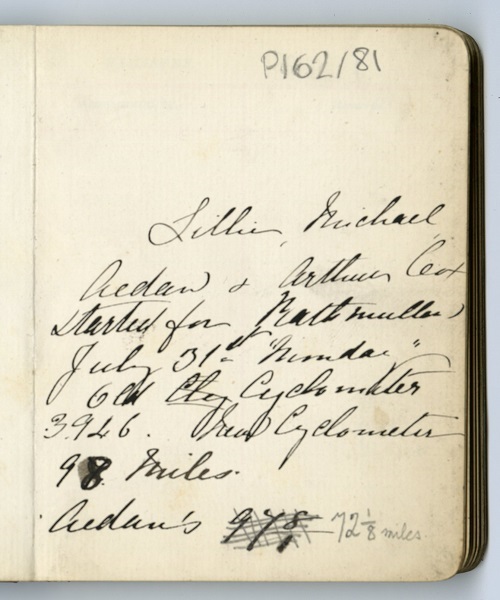 P162/81
Lillie, Michael,
Aedan & Arthur Cox
started for Rathmullan
July 31st "Monday"
Old Cyclometer
3926. New Cyclometer
98 Miles.
Aedan's 72 1/8 miles